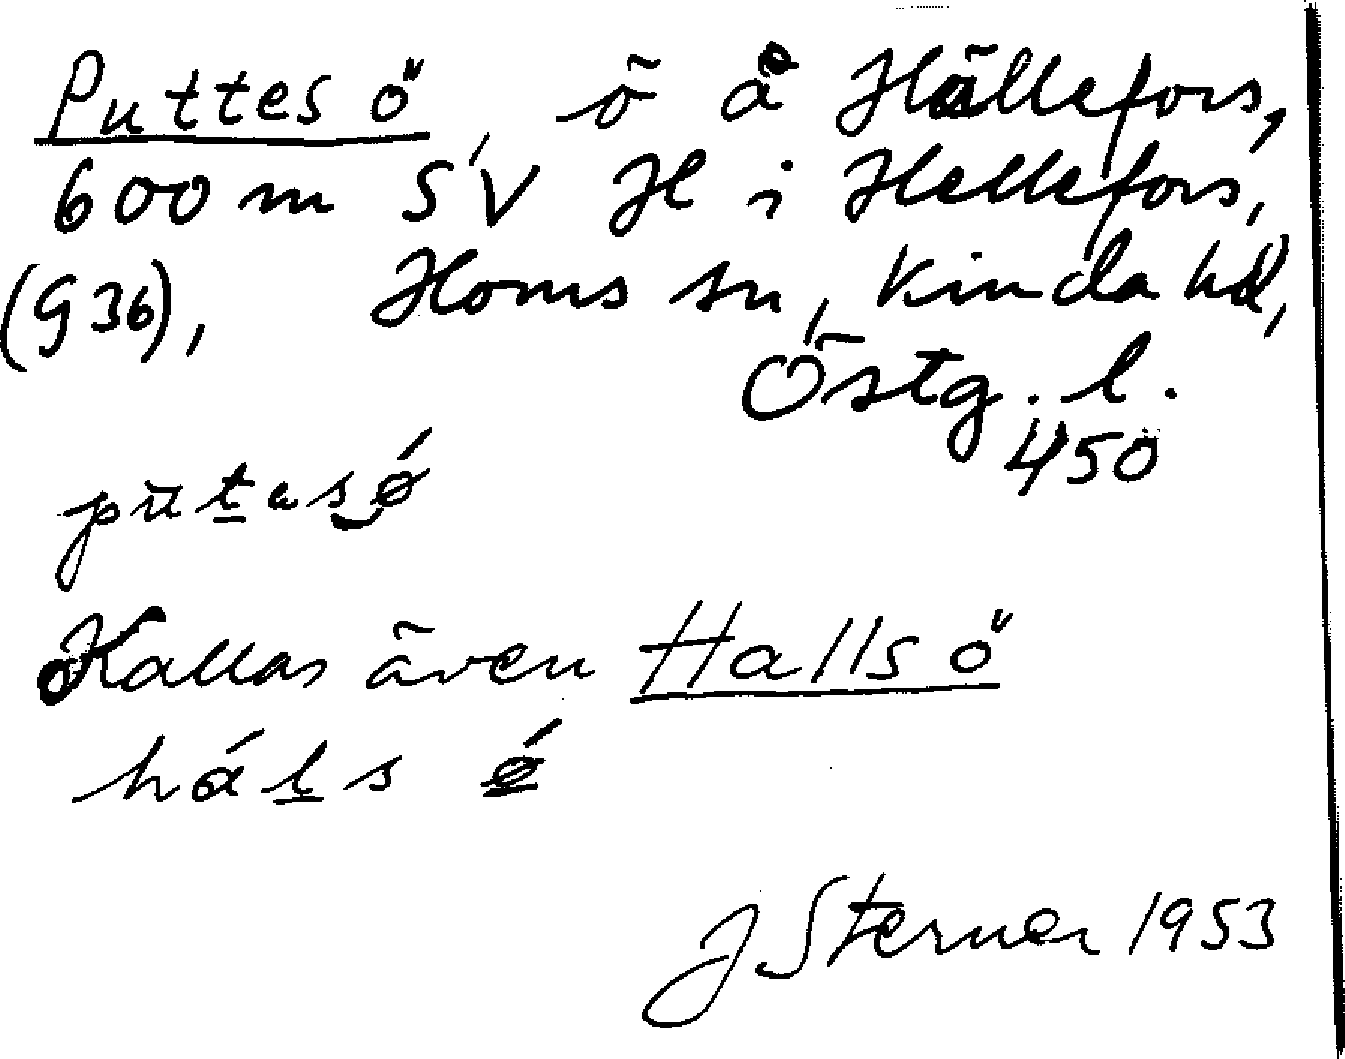 Puttes ö, ö å Hällefors,
600 m SV H i Hellefors,
(G36), Horns sn, Kinda hd,
Östg. l.
450
pu̇t̲asǿ
Kallas även Halls ö
hál̲s ǿ
J Sterner 1953